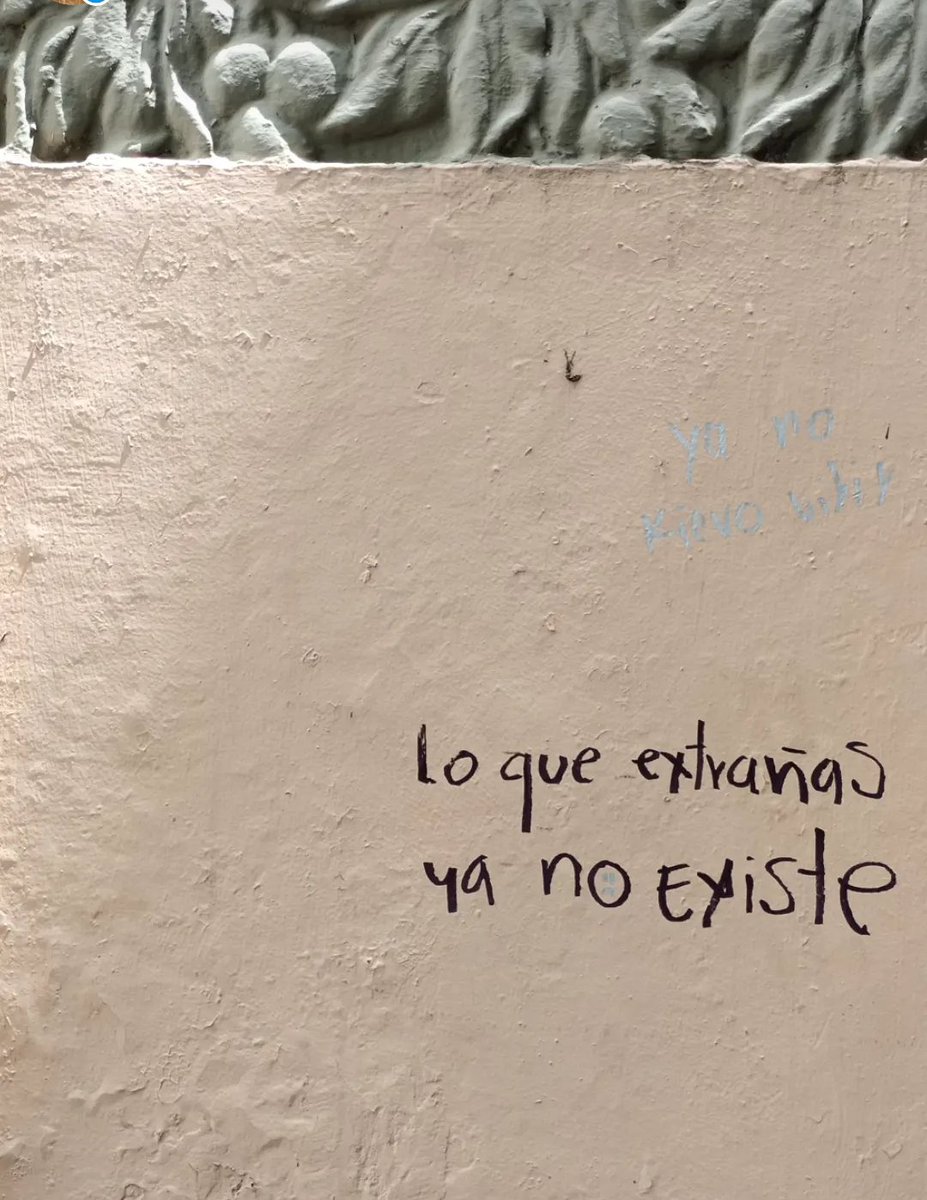 ya no
kiero vivir
lo que extrañas
ya no existe